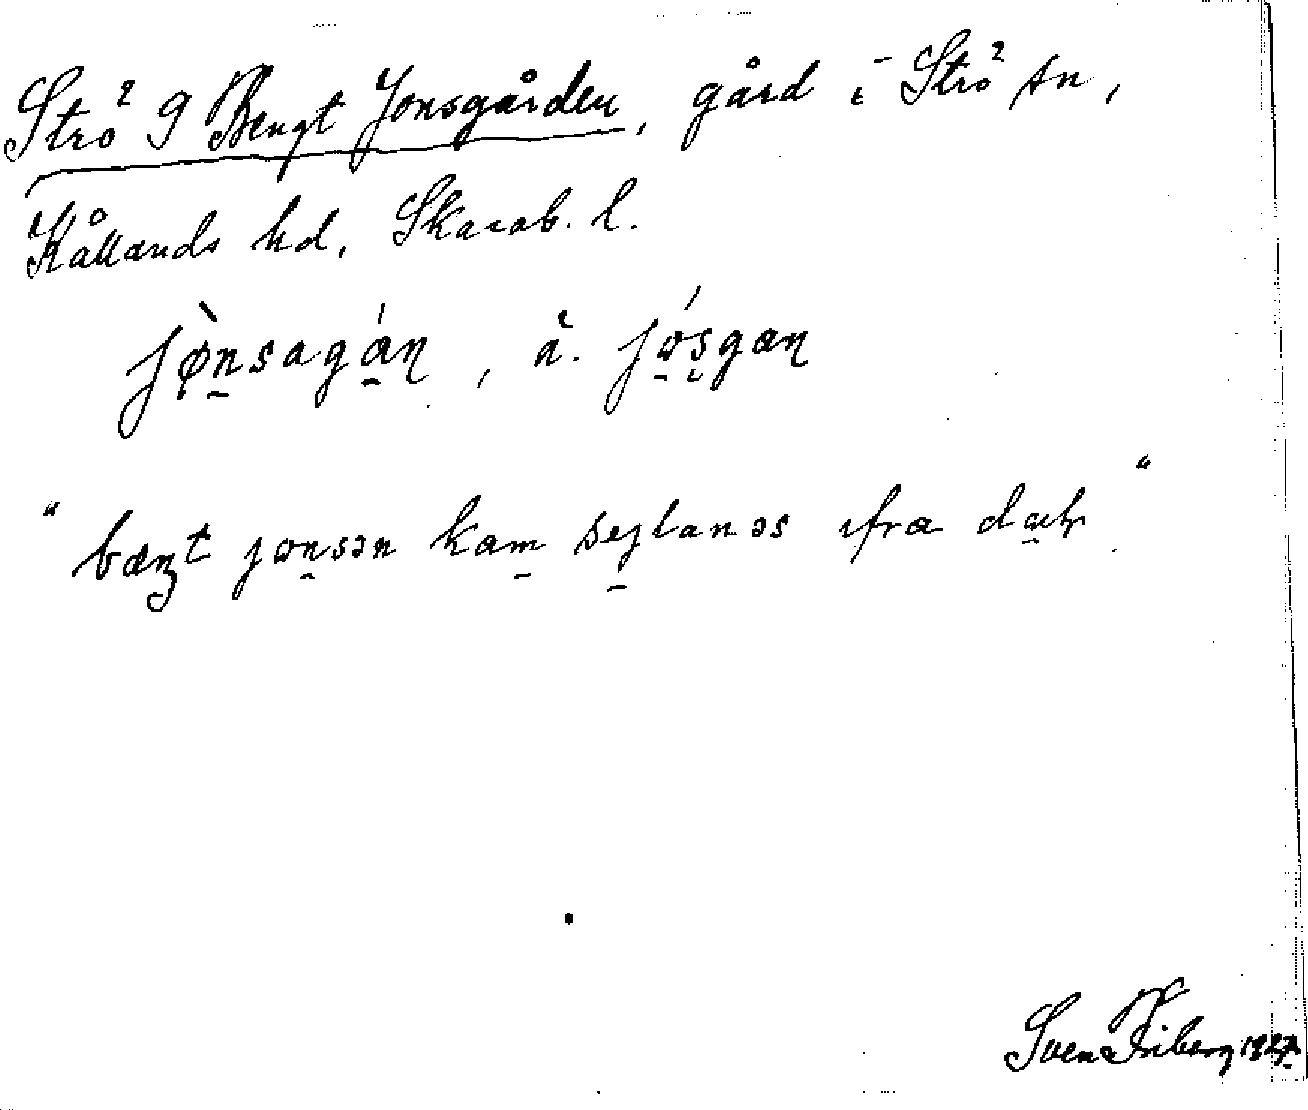 Strö 9 Bengt Jonsgården, gård i Strö sn,
Kållands hd, Skarab. l.
jònsagán, ä. jósgan
"bæŋt jonsən kam sejlanəs ifra
Sven Friberg 1927